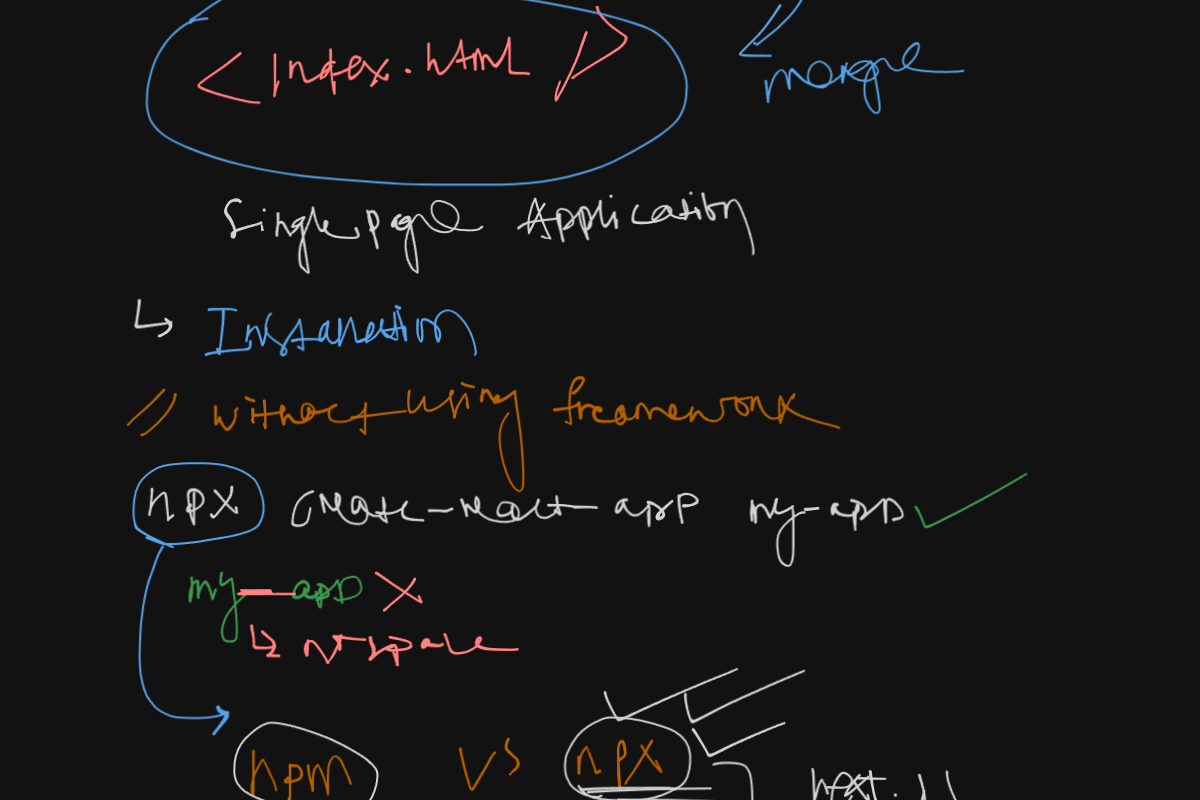 <Index.html />
merge
Single page Application
↳ Installation
// without using framework
npx create-react-app my-app ✓
my-app X
↳ no space
npm VS npx